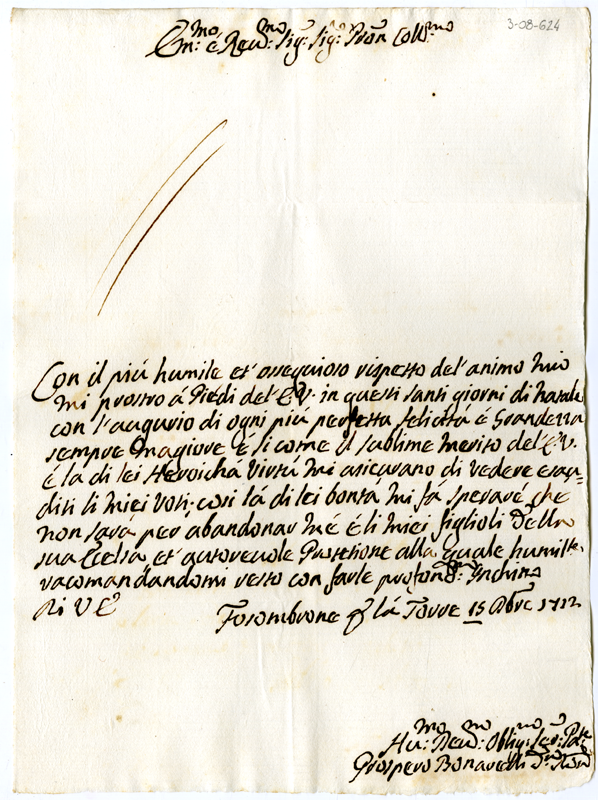 3-08-624
Em:mo é Reu:mo Sig: Sig: Pron Coll:mo
Con il piú humile et' ossequioso rispetto del' animo mio
mi prostro á Piedi del' E.V. in questi santi giorni di natale
con l'augurio di ogni piú perfetta felicità é Grandezza
sempre Magiore é si come il sublime merito del' E.V.
é la di lei Heroicha Virtú mi asicurano di vedere esau=
diti li miei Voti; cosi lá di lei bontá mi fá sperare che
non sará per abandonar mé é li miei figlioli della
sua Eccelsa et' autoreuole Protetione alla quale humilte.
racomandandomi resto con farle profond:mo Inchino
Di V E
Fosombrone p lá Torre 15 Xbre 1712
Hu:mo Deuo:mo Oblig:mo Ser:
Prospero Bonarelli